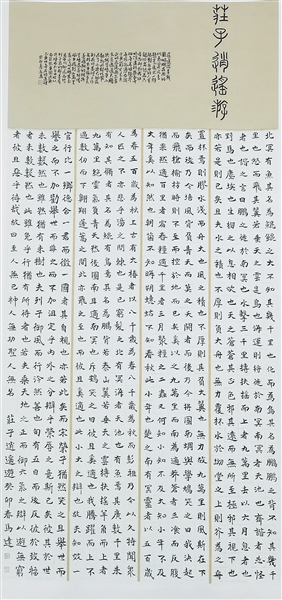 莊子逍遙游
北冥有魚其名為鯤鯤之大不知其幾千里也化而為鳥其名為鵬鵬之背不知其幾千
里也怒而飛其翼若垂天之雲是鳥也海運則將徙於南冥南冥者天池也齊諧者志怪
者也諧之言曰鵬之徙於南冥也水擊三千里摶扶搖而上者九萬里去以六月息者也野
馬也塵埃也生物之以息相吹也天之蒼蒼其正色邪其遠而無所至極邪其視下也
亦若是則已矣且夫水之積也不厚則其負大舟也無力覆杯水於坳堂之上則芥為之舟
置杯焉則膠水淺而舟大也風之積也不厚則其負大翼也無力故九萬里則風斯在下
矣而後乃今培風背負青天而莫之夭閼者而後乃今將圖南蜩與學鳩笑之曰我決起
而飛搶榆枋時則不至而控於地而已矣奚以之九萬里而南為適莽蒼者三飡而反腹
猶果然適百里者宿舂糧適千里者三月聚糧之二蟲又何知小知不及大知小年不及
大年奚以知其然也朝菌不知晦朔蟪蛄不知春秋此小年也楚之南有冥靈者以五百歲
為春五百歲為秋上古有大椿者以八千歲為春八千歲為秋而彭祖乃今以久特聞眾
人匹之不亦悲乎湯之問棘也是已窮髮之北有冥海者天池也有魚焉其廣數千里未
有知其脩者其名為鯤有鳥焉其名為鵬背若泰山翼若垂天之雲摶扶搖羊角而上者
九萬里絕雲氣負青天然後圖南且適南冥也斥鴳笑之曰彼且奚適也我騰躍而上不
過數仞而下翱翔蓬蒿之間此亦飛之至也而彼且奚適也此小大之辯也故夫知效一
官行比一鄉德合一君而徵一國者其自視也亦若此矣而宋榮子猶然笑之且舉世而
譽之而不加勸舉世而非之而不加沮定乎內外之分辯乎榮辱之竟斯已矣彼其於世
未數數然也雖然猶有未樹也夫列子御風而行泠然善也旬有五日而後反彼於致福
者未數數然也此雖免乎行猶有所待者也若夫乘天地之正而御六氣之辯以遊無窮
者彼且惡乎待哉故曰至人無己神人無功聖人無名 莊子逍遙遊癸卯春馬達